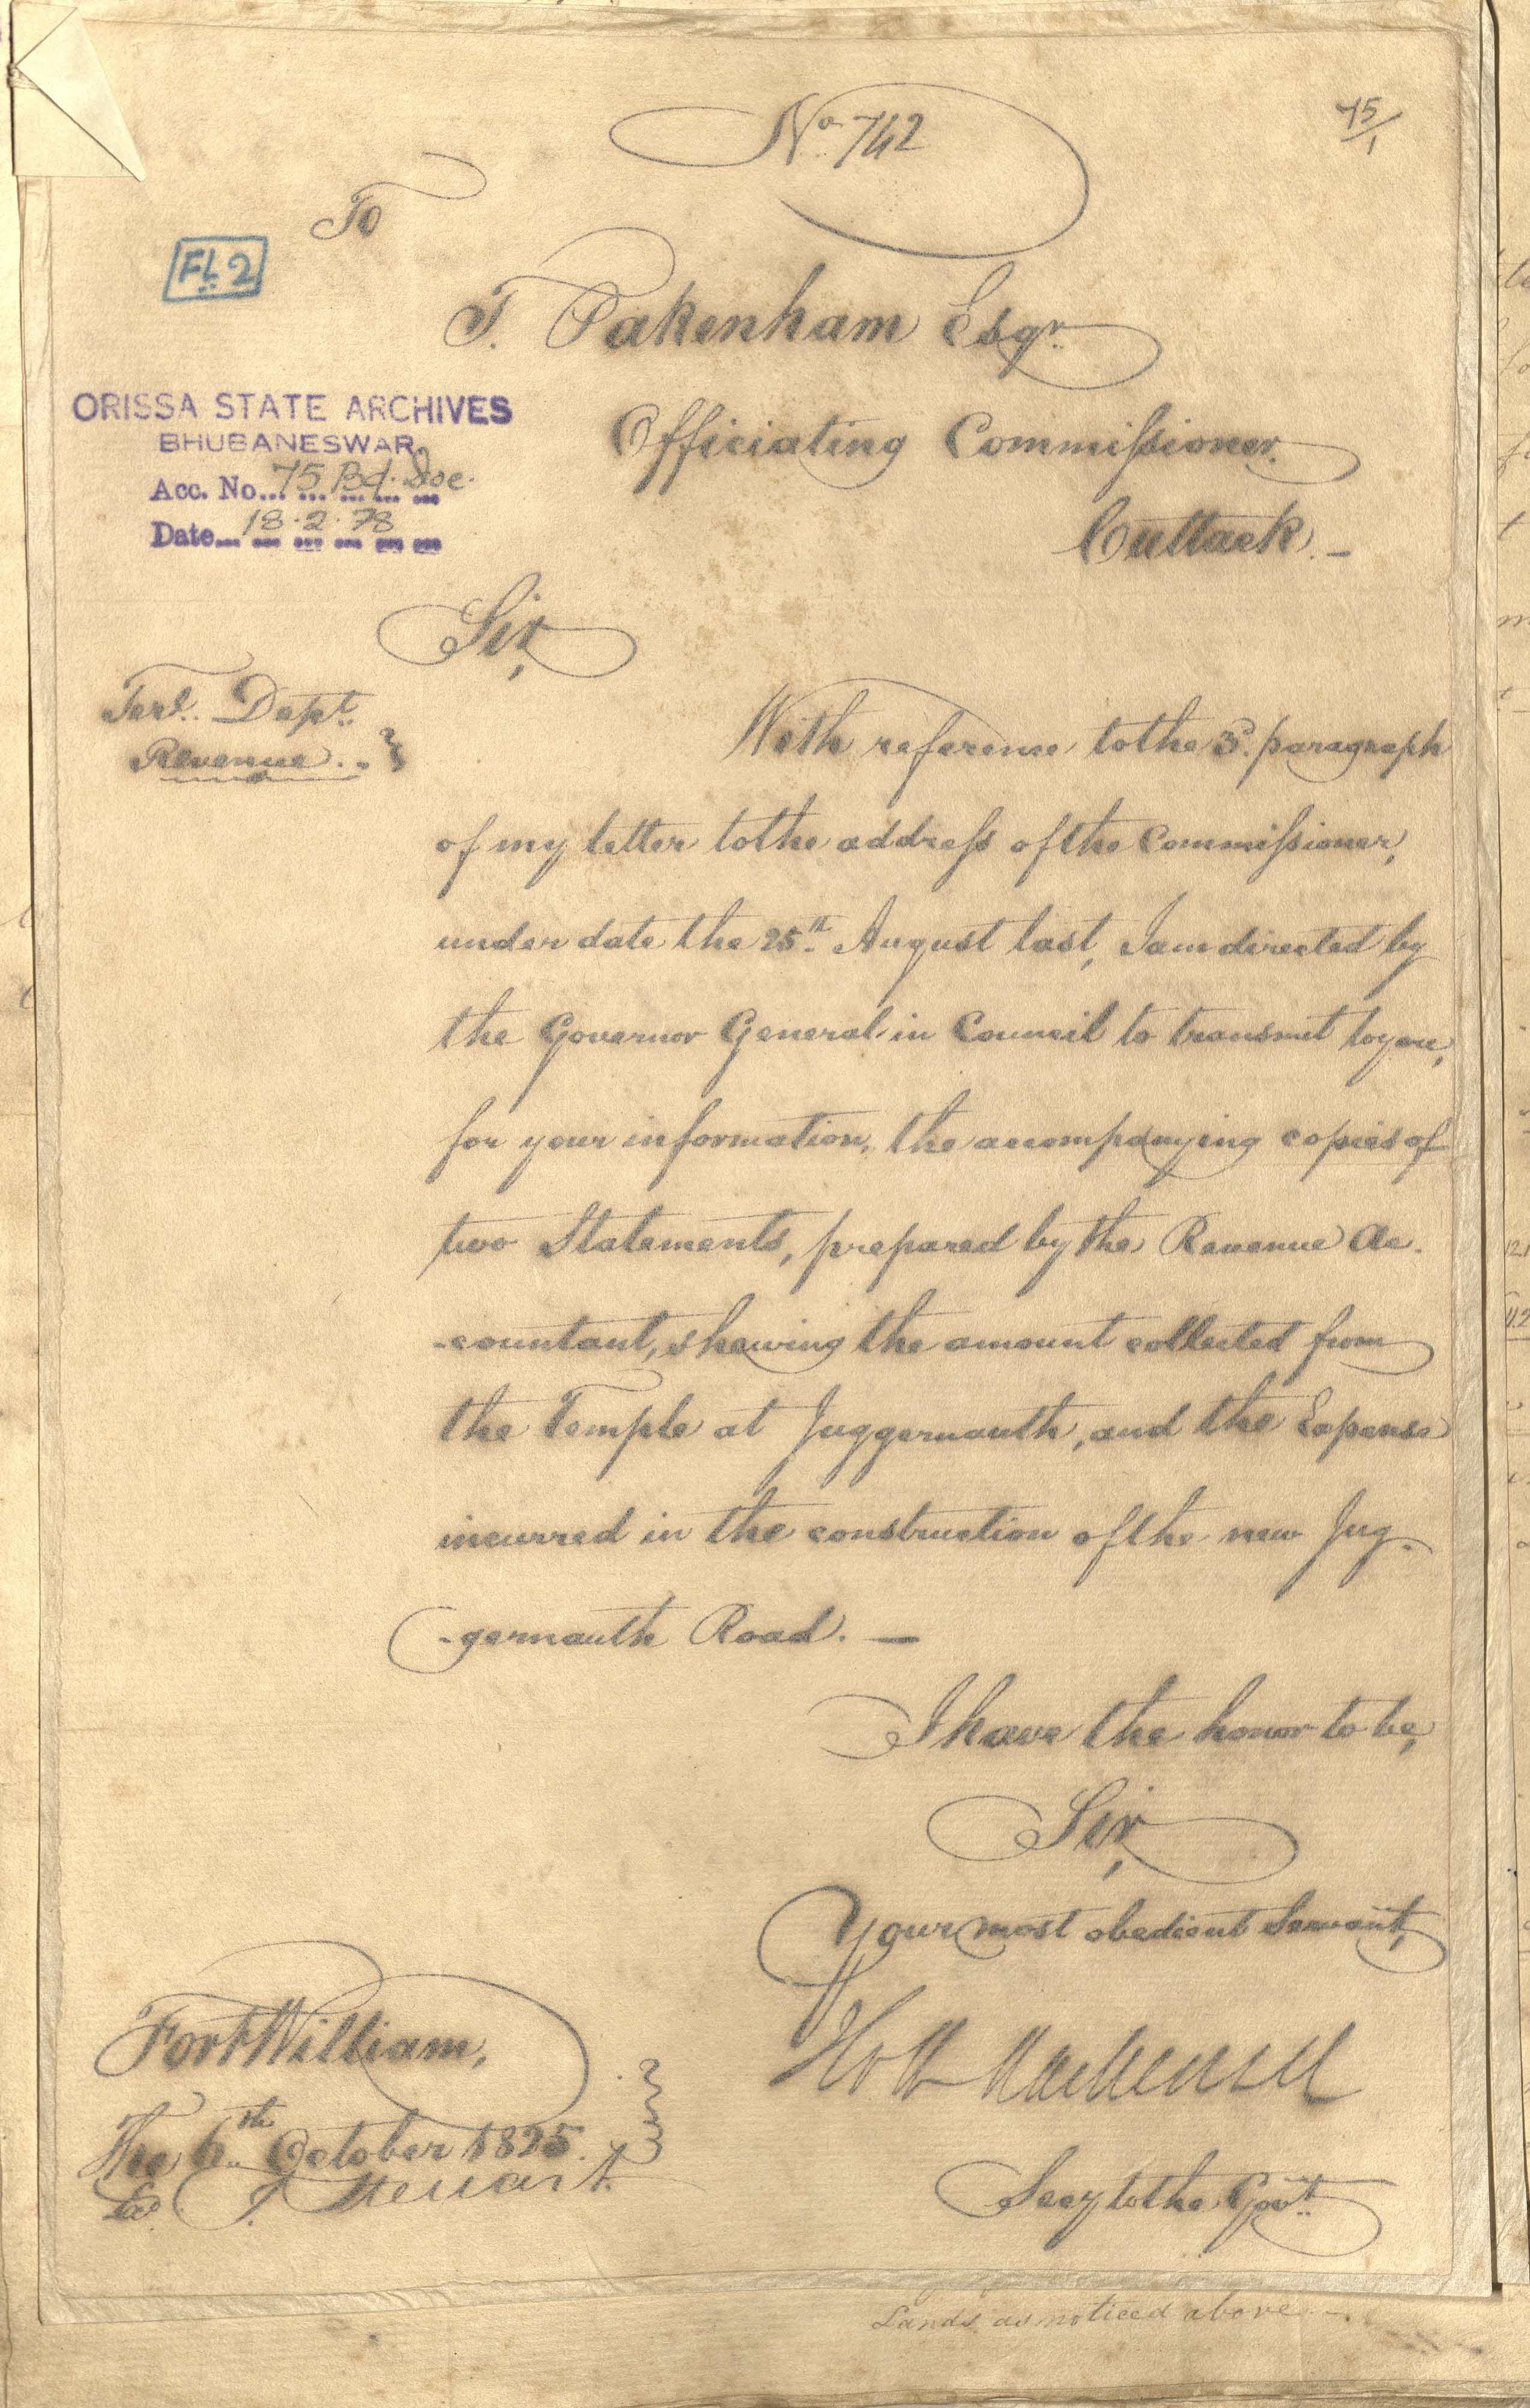 No 742
75/1
To
FL 2
T. Pakenham Esqr.
ORISSA STATE ARCHIVES
BHUBANESWAR
Acc. No... 75 Bd. Doc.
Date... 18.2.78
Officiating Commissioner.
Cuttack. –
Sir,
Terl. Dept.
Revenue. –
With reference to the 3d. paragraph
of my letter to the address of the Commissioner,
under date the 25th August last, I am directed by
the Governor General in Council to transmit to you,
for your information, the accompanying copies of
two Statements, prepared by the Revenue Ac-
-countant, shewing the amount collected from
the Temple at Juggernauth, and the Expense
incurred in the construction of the new Jug-
-gernauth Road. —
I have the honor to be,
Sir,
Your most obedient Servant,
Holt Mackenzie
Secy to the Govt.
Fort William,
The 6th October 1825.
T. Steuart.
Lands as noticed above. –